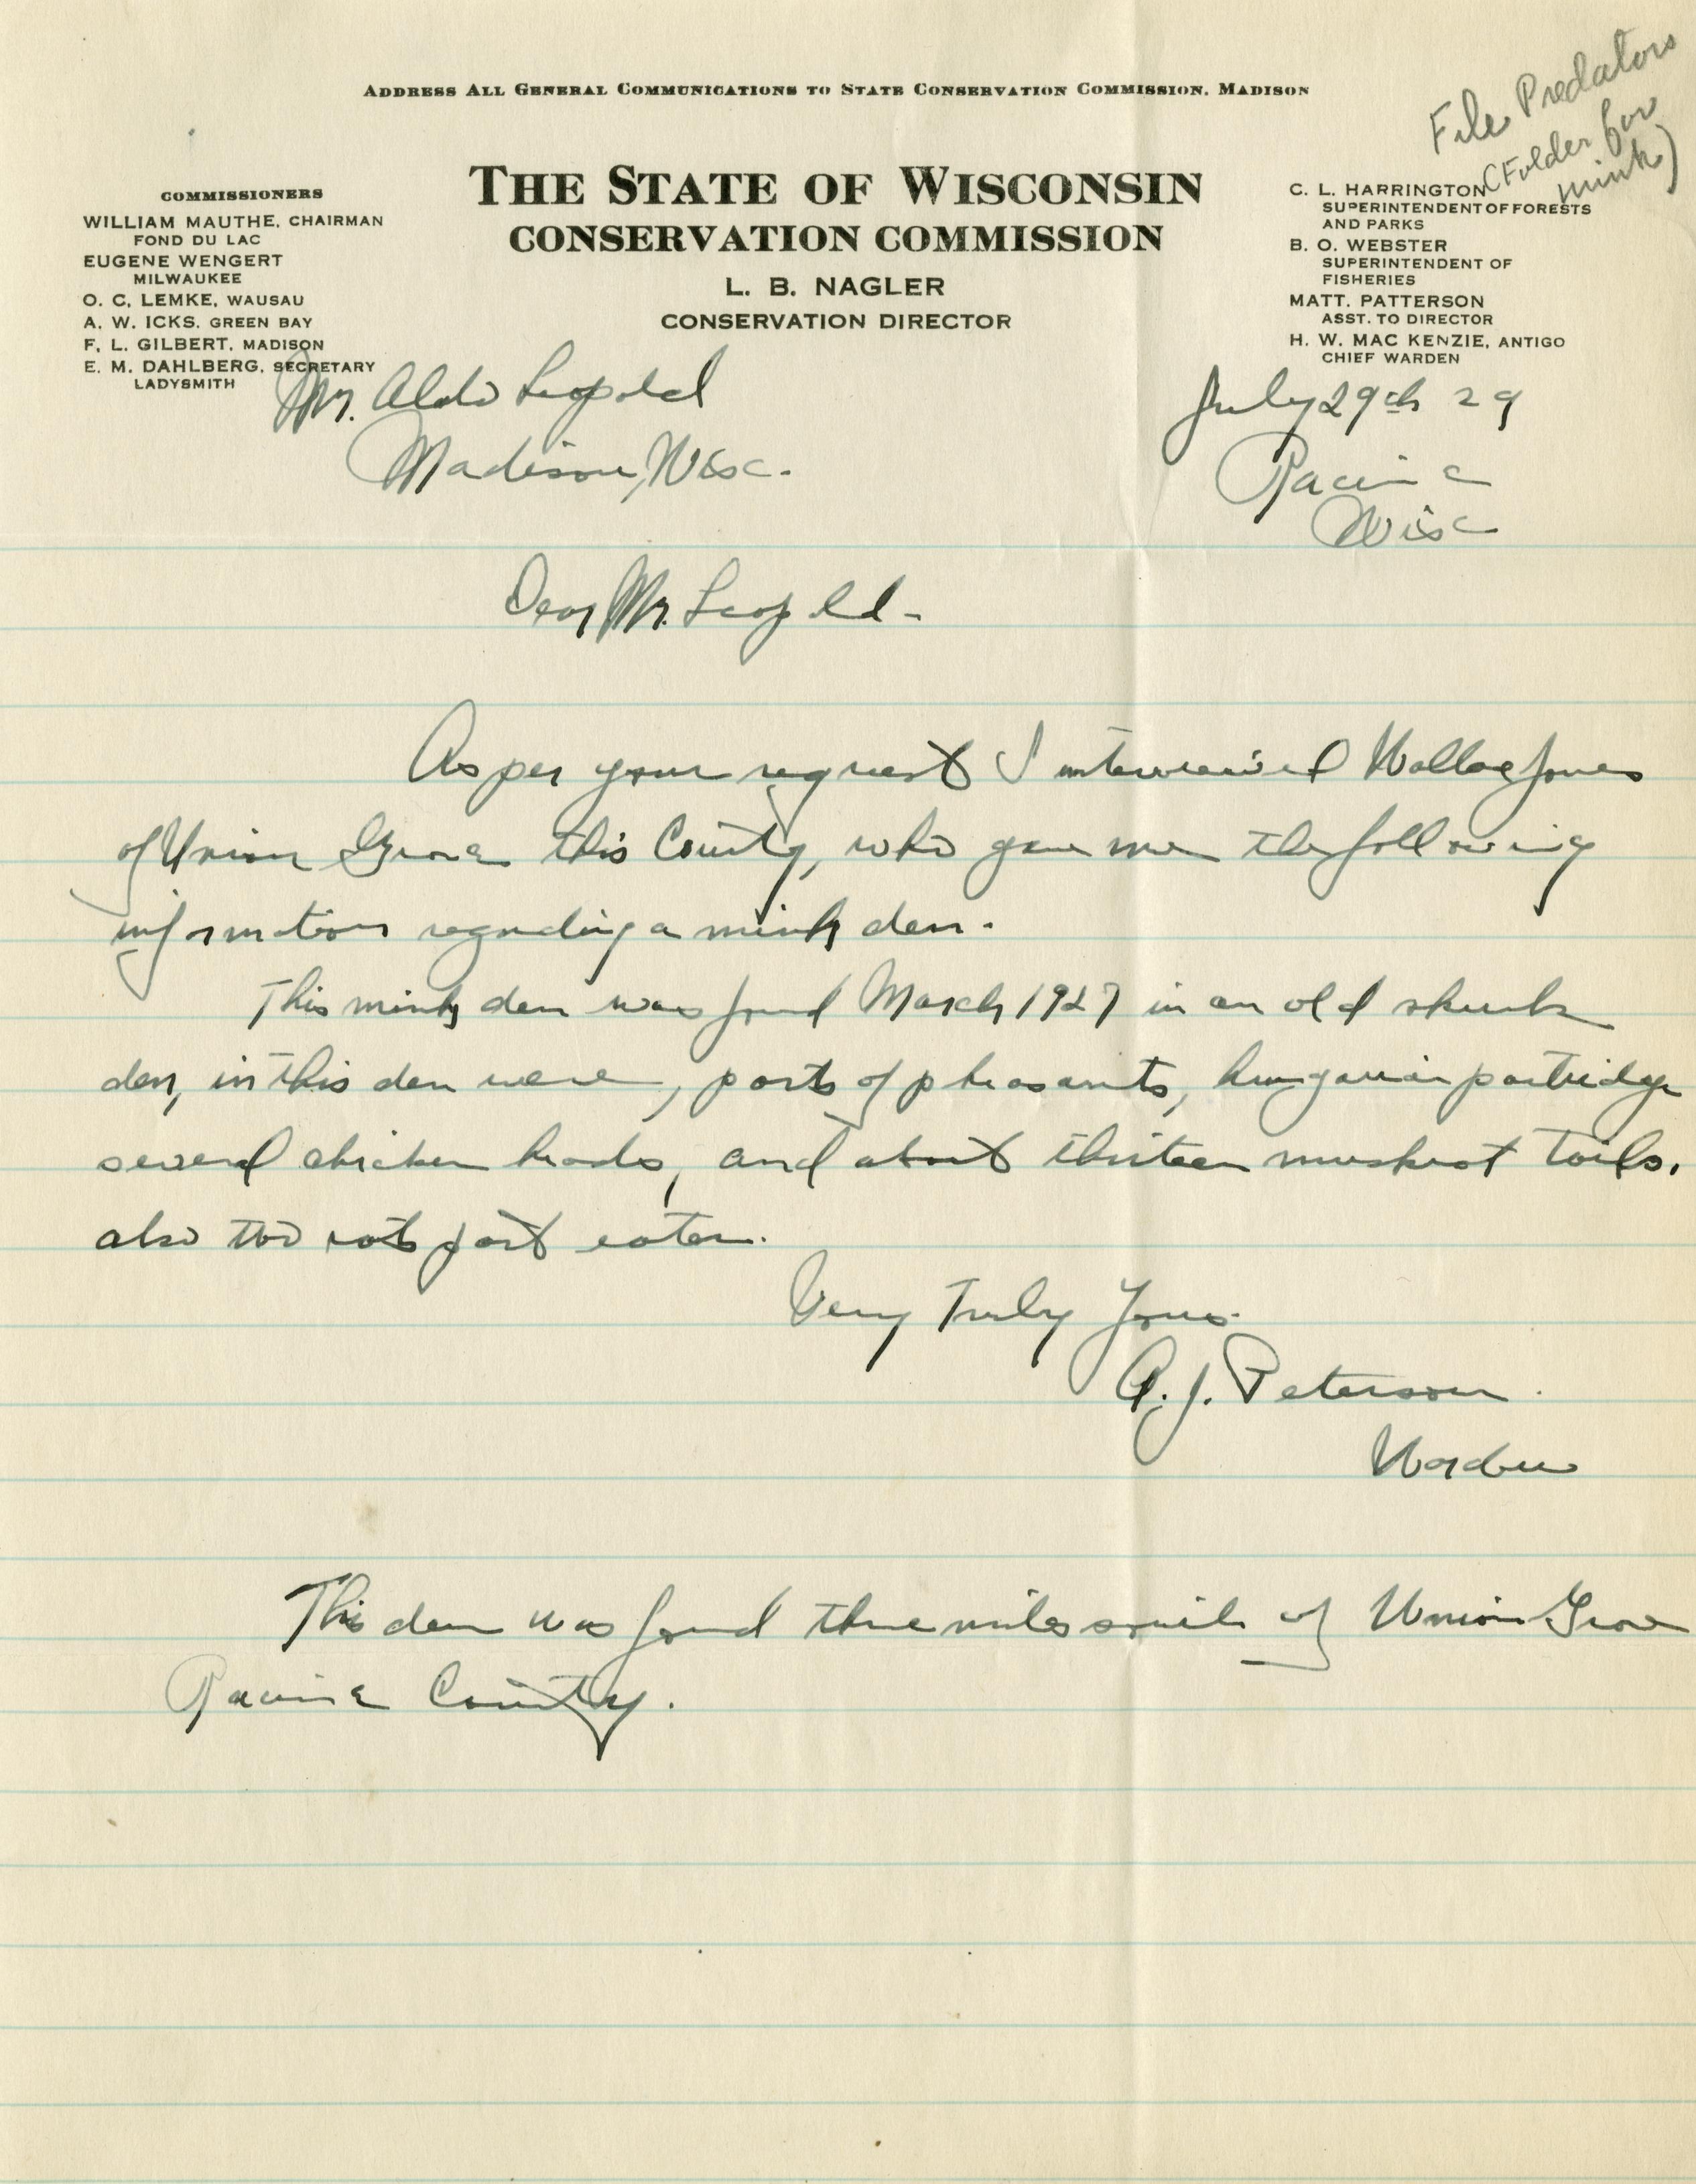 File Predators
(Folder for
mink)
ADDRESS ALL GENERAL COMMUNICATIONS TO STATE CONSERVATION COMMISSION, MADISON
THE STATE OF WISCONSIN
CONSERVATION COMMISSION
L. B. NAGLER
CONSERVATION DIRECTOR
COMMISSIONERS
WILLIAM MAUTHE, CHAIRMAN
FOND DU LAC
EUGENE WENGERT
MILWAUKEE
O. C. LEMKE, WAUSAU
A. W. ICKS. GREEN BAY
F. L. GILBERT, MADISON
E. M. DAHLBERG, SECRETARY
LADYSMITH
C. L. HARRINGTON
SUPERINTENDENT OF FORESTS
AND PARKS
B. O. WEBSTER
SUPERINTENDENT OF
FISHERIES
MATT. PATTERSON
ASST. TO DIRECTOR
H. W. MAC KENZIE, ANTIGO
CHIEF WARDEN
Mr. Aldo Leopold
Madison, Wisc.
July 29th 29
Racine
Wisc
Dear Mr. Leopold -
As per your request I interviewed Wallace Jones
of Union Grove this County, who gave me the following
information regarding a mink den.
This mink den was found March 1927 in an old skunk
den, in this den were, parts of pheasants, hungarian partridge
several chicken heads, and about thirteen muskrat tails.
also two rats part eaten.
Very Truly Yours.
A. J. Peterson.
Warden
This den was found three miles south of Union Grove
Racine County.